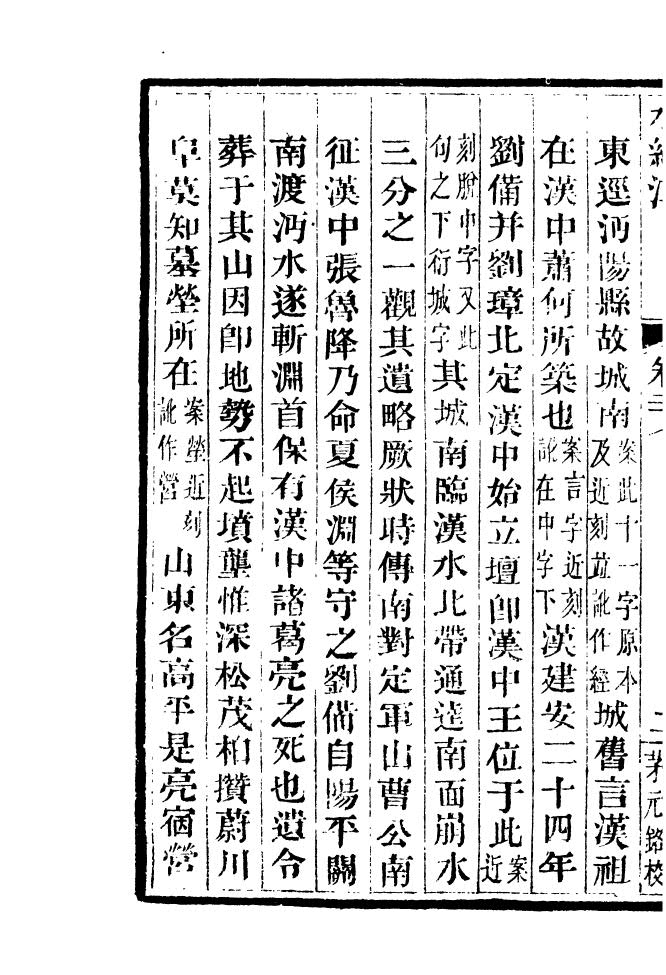 水經注 卷二 二 茅元銘校
東逕沔陽縣故城南案此十一字原本及近刻並訛作經城舊言漢祖
在漢中蕭何所築也案言字近刻訛在中字下漢建安二十四年
劉備并劉璋北定漢中始立壇卽漢中王位于此案近
刻脫中字又此句之下衍城字其城南臨漢水北帶通逵南面崩水
三分之一觀其遺略厥狀時傳南對定軍山曹公南
征漢中張魯降乃命夏侯淵等守之劉備自陽平關
南渡沔水遂斬淵首保有漢中諸葛亮之死也遺令
葬于其山因卽地勢不起墳壟惟深松茂柏攢蔚川
阜莫知墓塋所在案塋近刻訛作營山東名高平是亮宿營